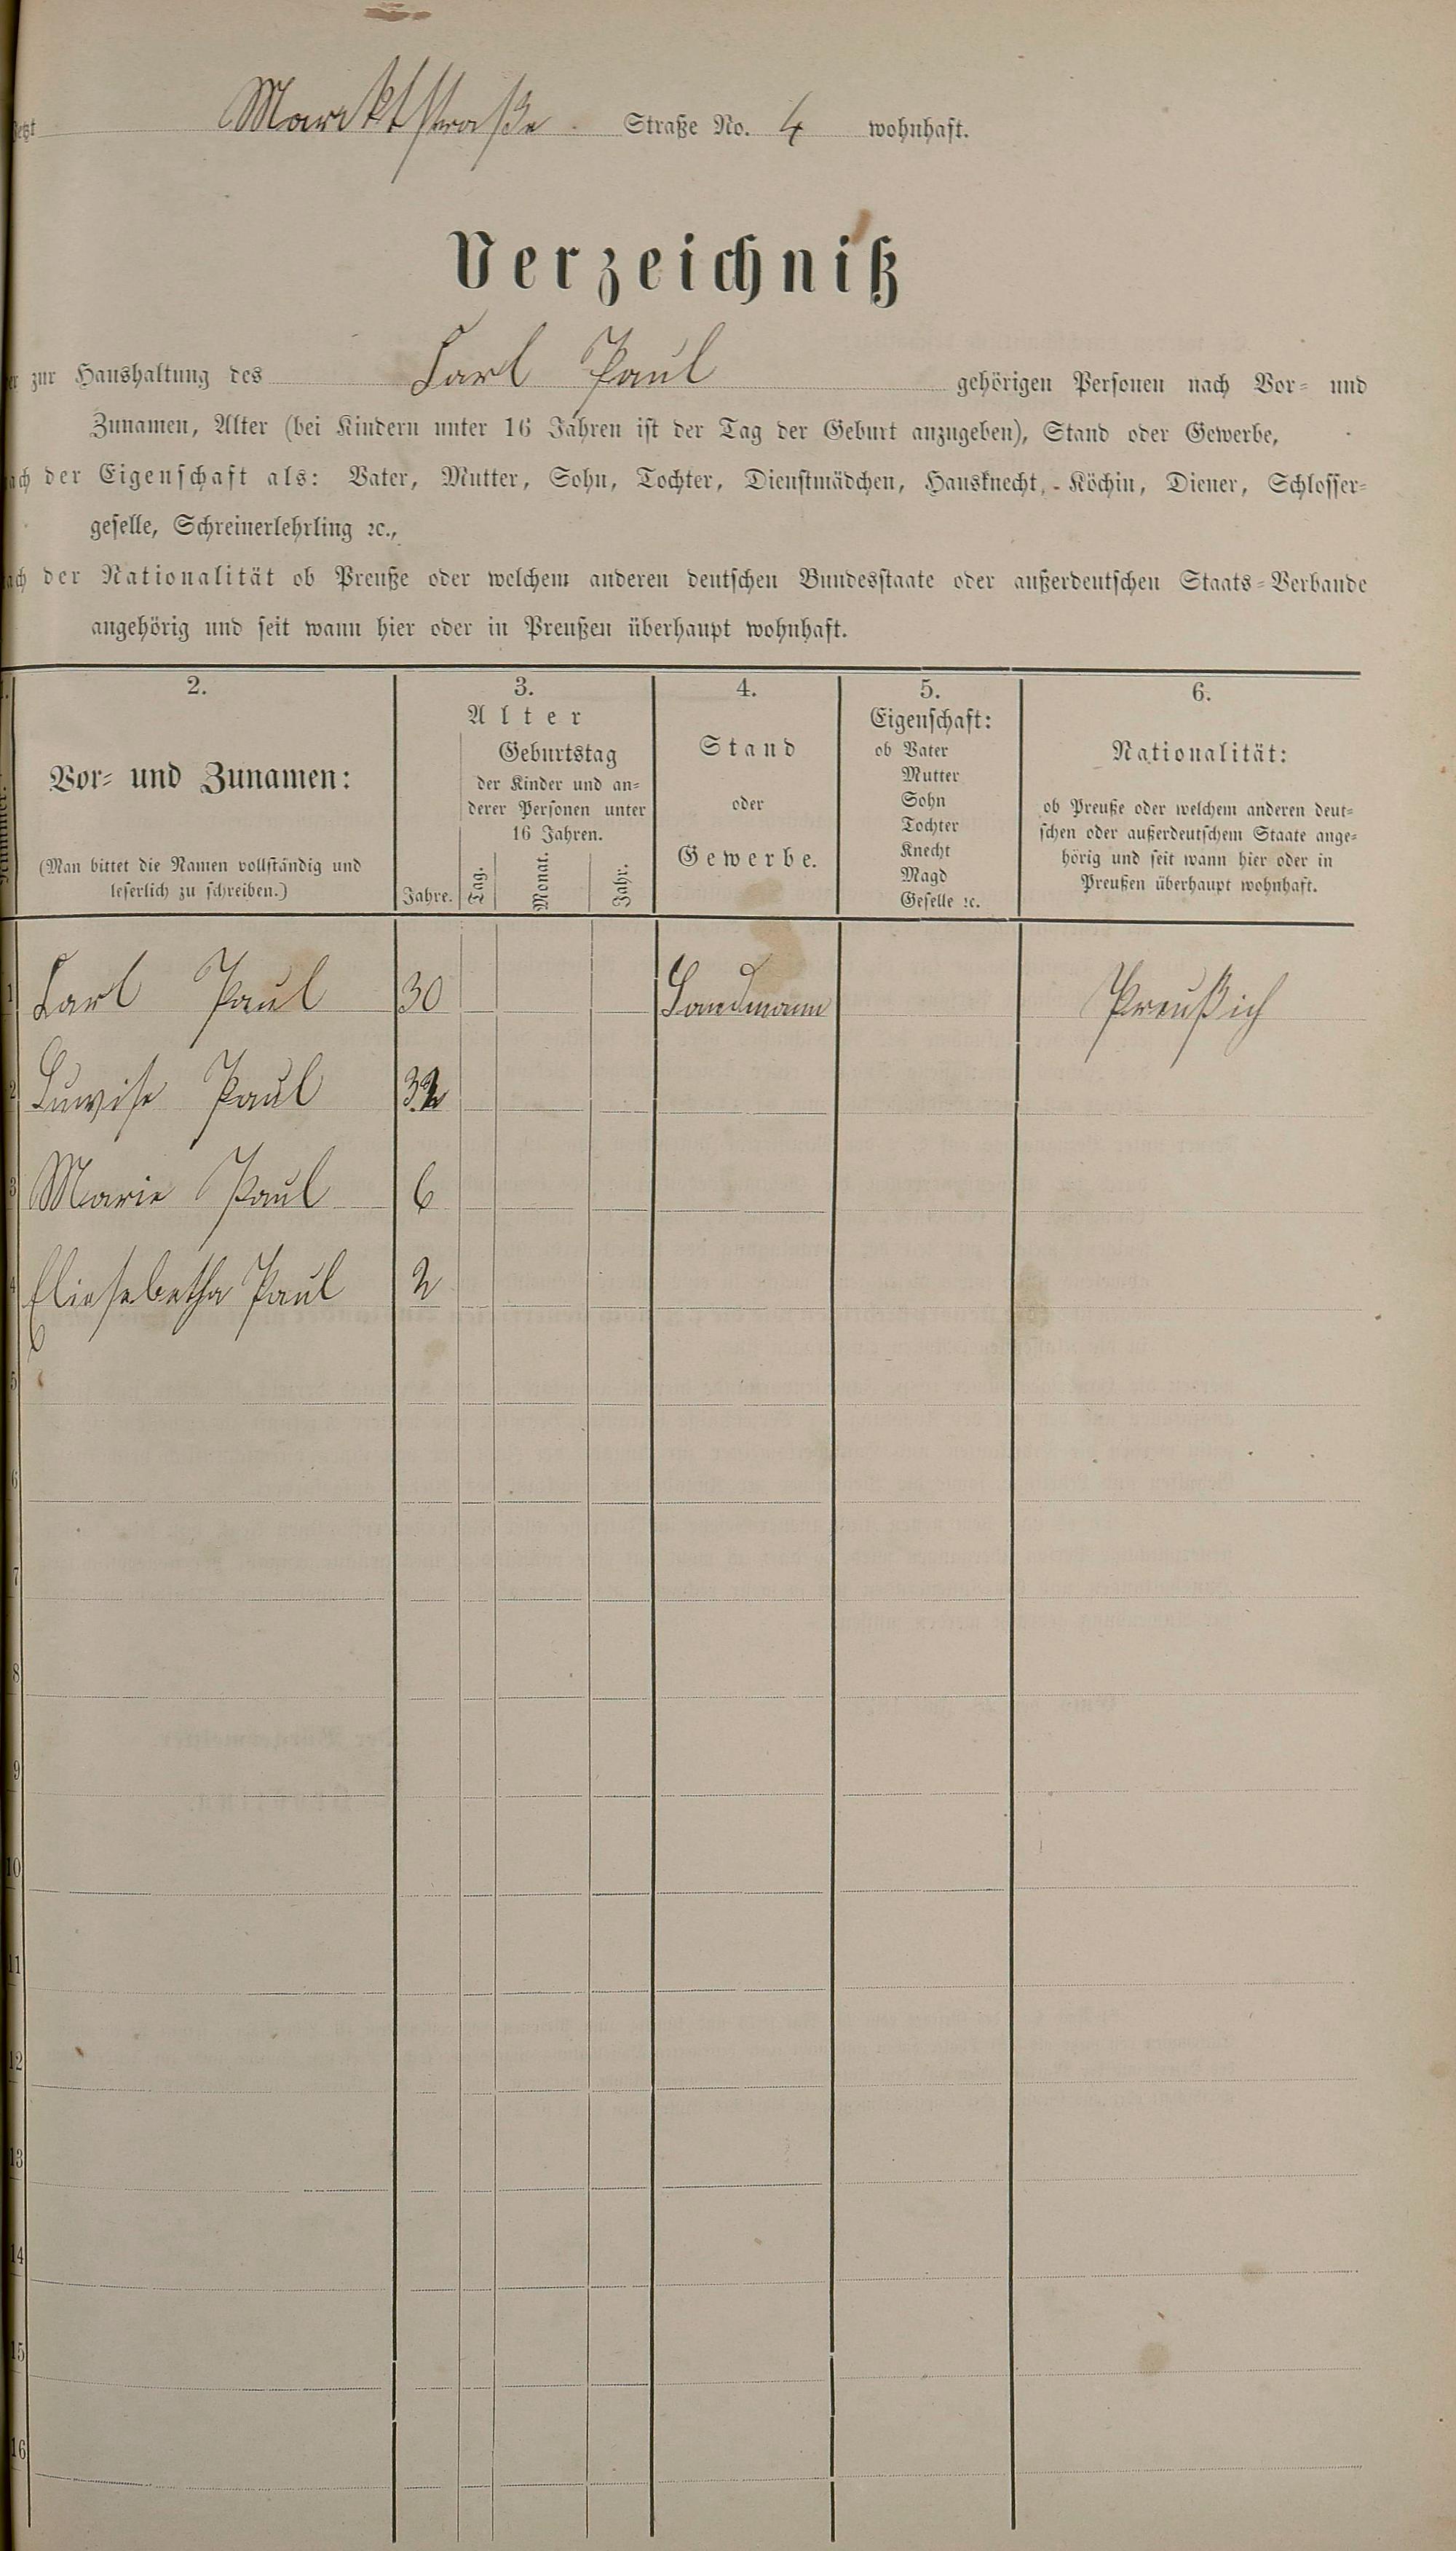 jetzt Marcktstraße Straße No. 4 wohnhaft.
Verzeichniß
der zur Haushaltung des Carl Paul gehörigen Personen nach Vor- und
Zunamen, Alter (bei Kindern unter 16 Jahren ist der Tag der Geburt anzugeben), Stand oder Gewerbe,
nach der Eigenschaft als: Vater, Mutter, Sohn, Tochter, Dienstmädchen, Hausknecht, Köchin, Diener, Schlosser-
geselle, Schreinerlehrling ꝛc.,
nach der Nationalität ob Preuße oder welchem anderen deutschen Bundesstaate oder außerdeutschen Staats-Verbande
angehörig und seit wann hier oder in Preußen überhaupt wohnhaft.
2.
Vor- und Zunamen:
(Man bittet die Namen vollständig und
leserlich zu schreiben.)
3.
Alter
Jahre.
Geburtstag
der Kinder und an-
derer Personen unter
16 Jahren.
Tag.
Monat.
Jahr.
4.
Stand
oder
Gewerbe.
5.
Eigenschaft:
ob Vater
Mutter
Sohn
Tochter
Knecht
Magd
Geselle ꝛc.
6.
Nationalität:
ob Preuße oder welchem anderen deut-
schen oder außerdeutschem Staate ange-
hörig und seit wann hier oder in
Preußen überhaupt wohnhaft.
1 Carl Paul 30 Landmann Preußich
2 Luwise Paul 32
3 Marie Paul 6
4 Eliesabetha Paul 2
5
6
7
8
9
10
11
12
13
14
15
16